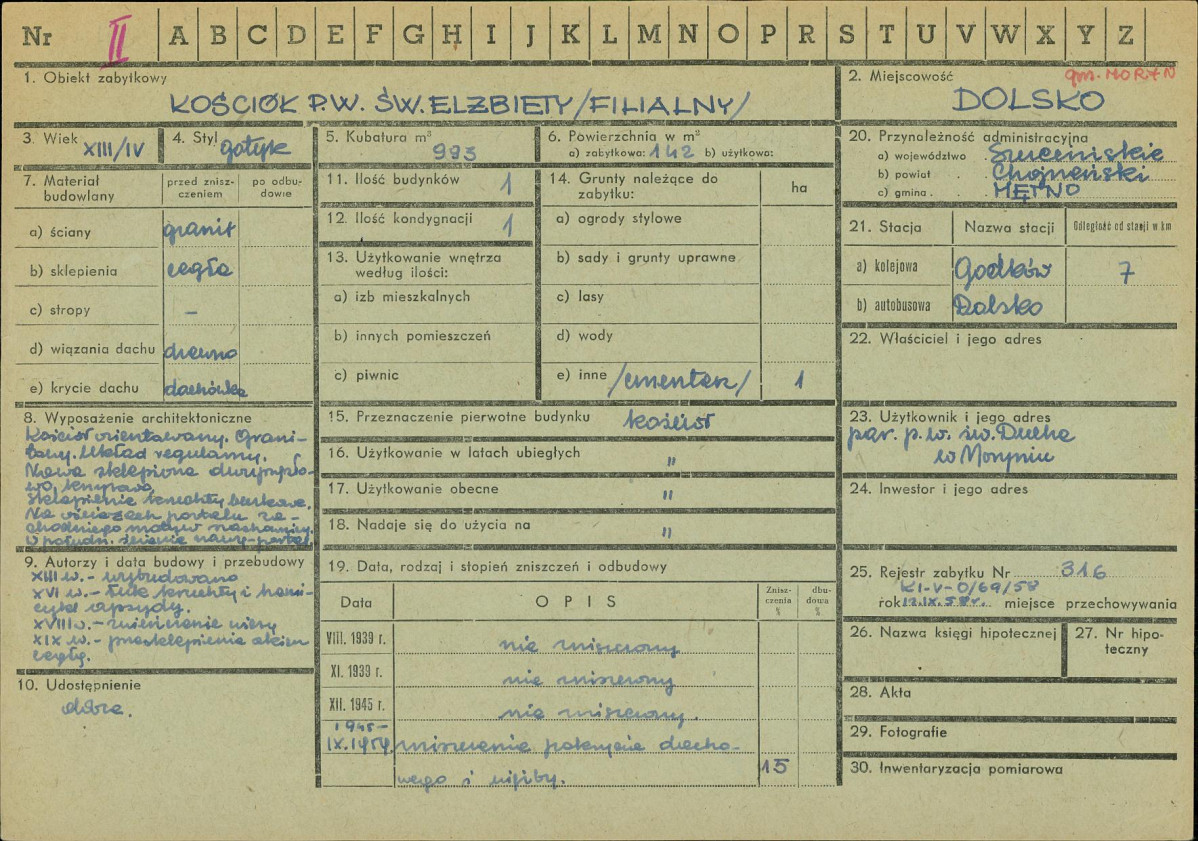 Nr II A B C D E F G H I J K L M N O P R S T U V W X Y Z
1. Obiekt zabytkowy
KOŚCIÓŁ P.W. ŚW. ELZBIETY /FILIALNY/
2. Miejscowość gm. MORYŃ
DOLSKO
3. Wiek XIII/IV
4. Styl gotyk
5. Kubatura m³ 993
6. Powierzchnia w m²
a) zabytkowa: 142 b) użytkowa:
7. Materiał budowlany
przed zniszczeniem
po odbudowie
a) ściany granit
b) sklepienia cegła
c) stropy –
d) wiązania dachu drewno
e) krycie dachu dachówka
8. Wyposażenie architektoniczne
Kościół orientowany. Grani-
towy. Układ regularny.
Nawa sklepiona
sklepienie kruchty
Na portalu za-
chodniego motyw
w połudn. ścianie nawy-portal
9. Autorzy i data budowy i przebudowy
XIII w. - wybudowano
XVI w. - łuk kruchty i
apsydy.
XVIII w. - wieży
XIX w. - okien
cegłą.
10. Udostępnienie
dobre.
11. Ilość budynków 1
12. Ilość kondygnacji 1
13. Użytkowanie wnętrza
według ilości:
a) izb mieszkalnych
b) innych pomieszczeń
c) piwnic
14. Grunty należące do
zabytku:
ha
a) ogrody stylowe
b) sady i grunty uprawne
c) lasy
d) wody
e) inne /cmentarz/ 1
15. Przeznaczenie pierwotne budynku kościół
16. Użytkowanie w latach ubiegłych "
17. Użytkowanie obecne "
18. Nadaje się do użycia na "
19. Data, rodzaj i stopień zniszczeń i odbudowy
Data OPIS Znisz-
czenia
% dbu-
dowa
%
VIII. 1939 r. nie zniszczony
XI. 1939 r. nie zniszczony
XII. 1945 r. nie zniszczony.
1945-
IX.1959. zniszczenie pokrycia dacho-
wego i szyby. 15
20. Przynależność administracyjna
a) województwo Szczecińskie
b) powiat Chojneński
c) gmina MĘTNO
21. Stacja Nazwa stacji Odległość od stacji w km
a) kolejowa Godków 7
b) autobusowa Dolsko
22. Właściciel i jego adres
23. Użytkownik i jego adres
par. p.w. św. Ducha
w Moryniu
24. Inwestor i jego adres
25. Rejestr zabytku Nr 316
Kl-V-0/69/58
rok 12.IX.58r. miejsce przechowywania
26. Nazwa księgi hipotecznej
27. Nr hipo-
teczny
28. Akta
29. Fotografie
30. Inwentaryzacja pomiarowa